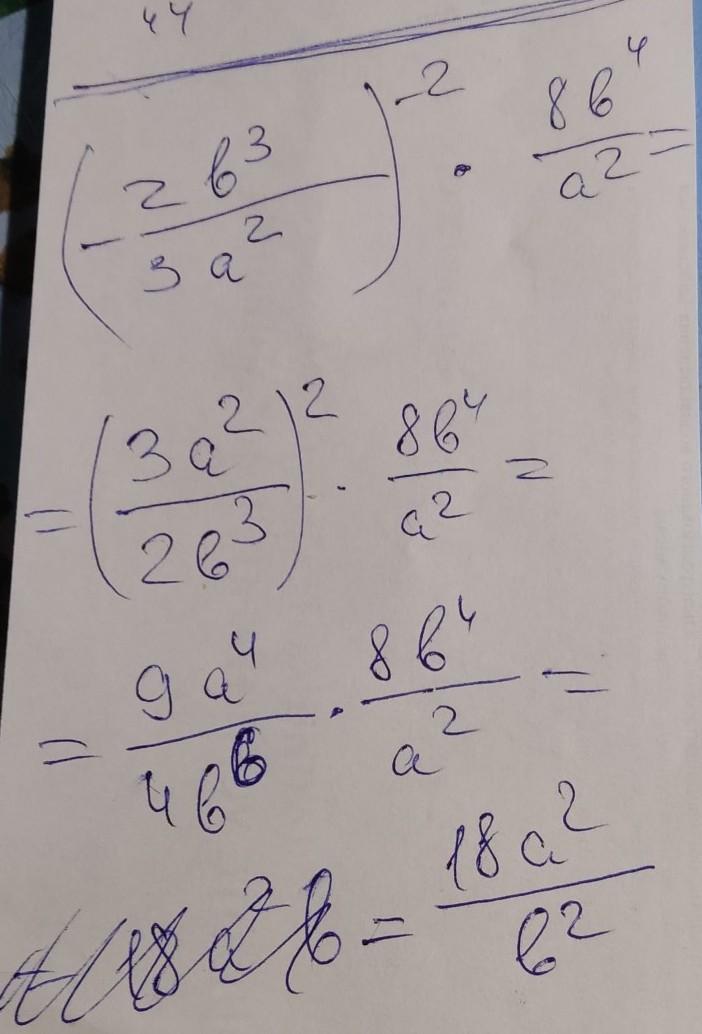 44
(-2b³/3a²)⁻² · 8b⁴/a² =
= (3a²/2b³)² · 8b⁴/a² =
= 9a⁴/4b⁶ · 8b⁴/a² =
= 18a²/b²